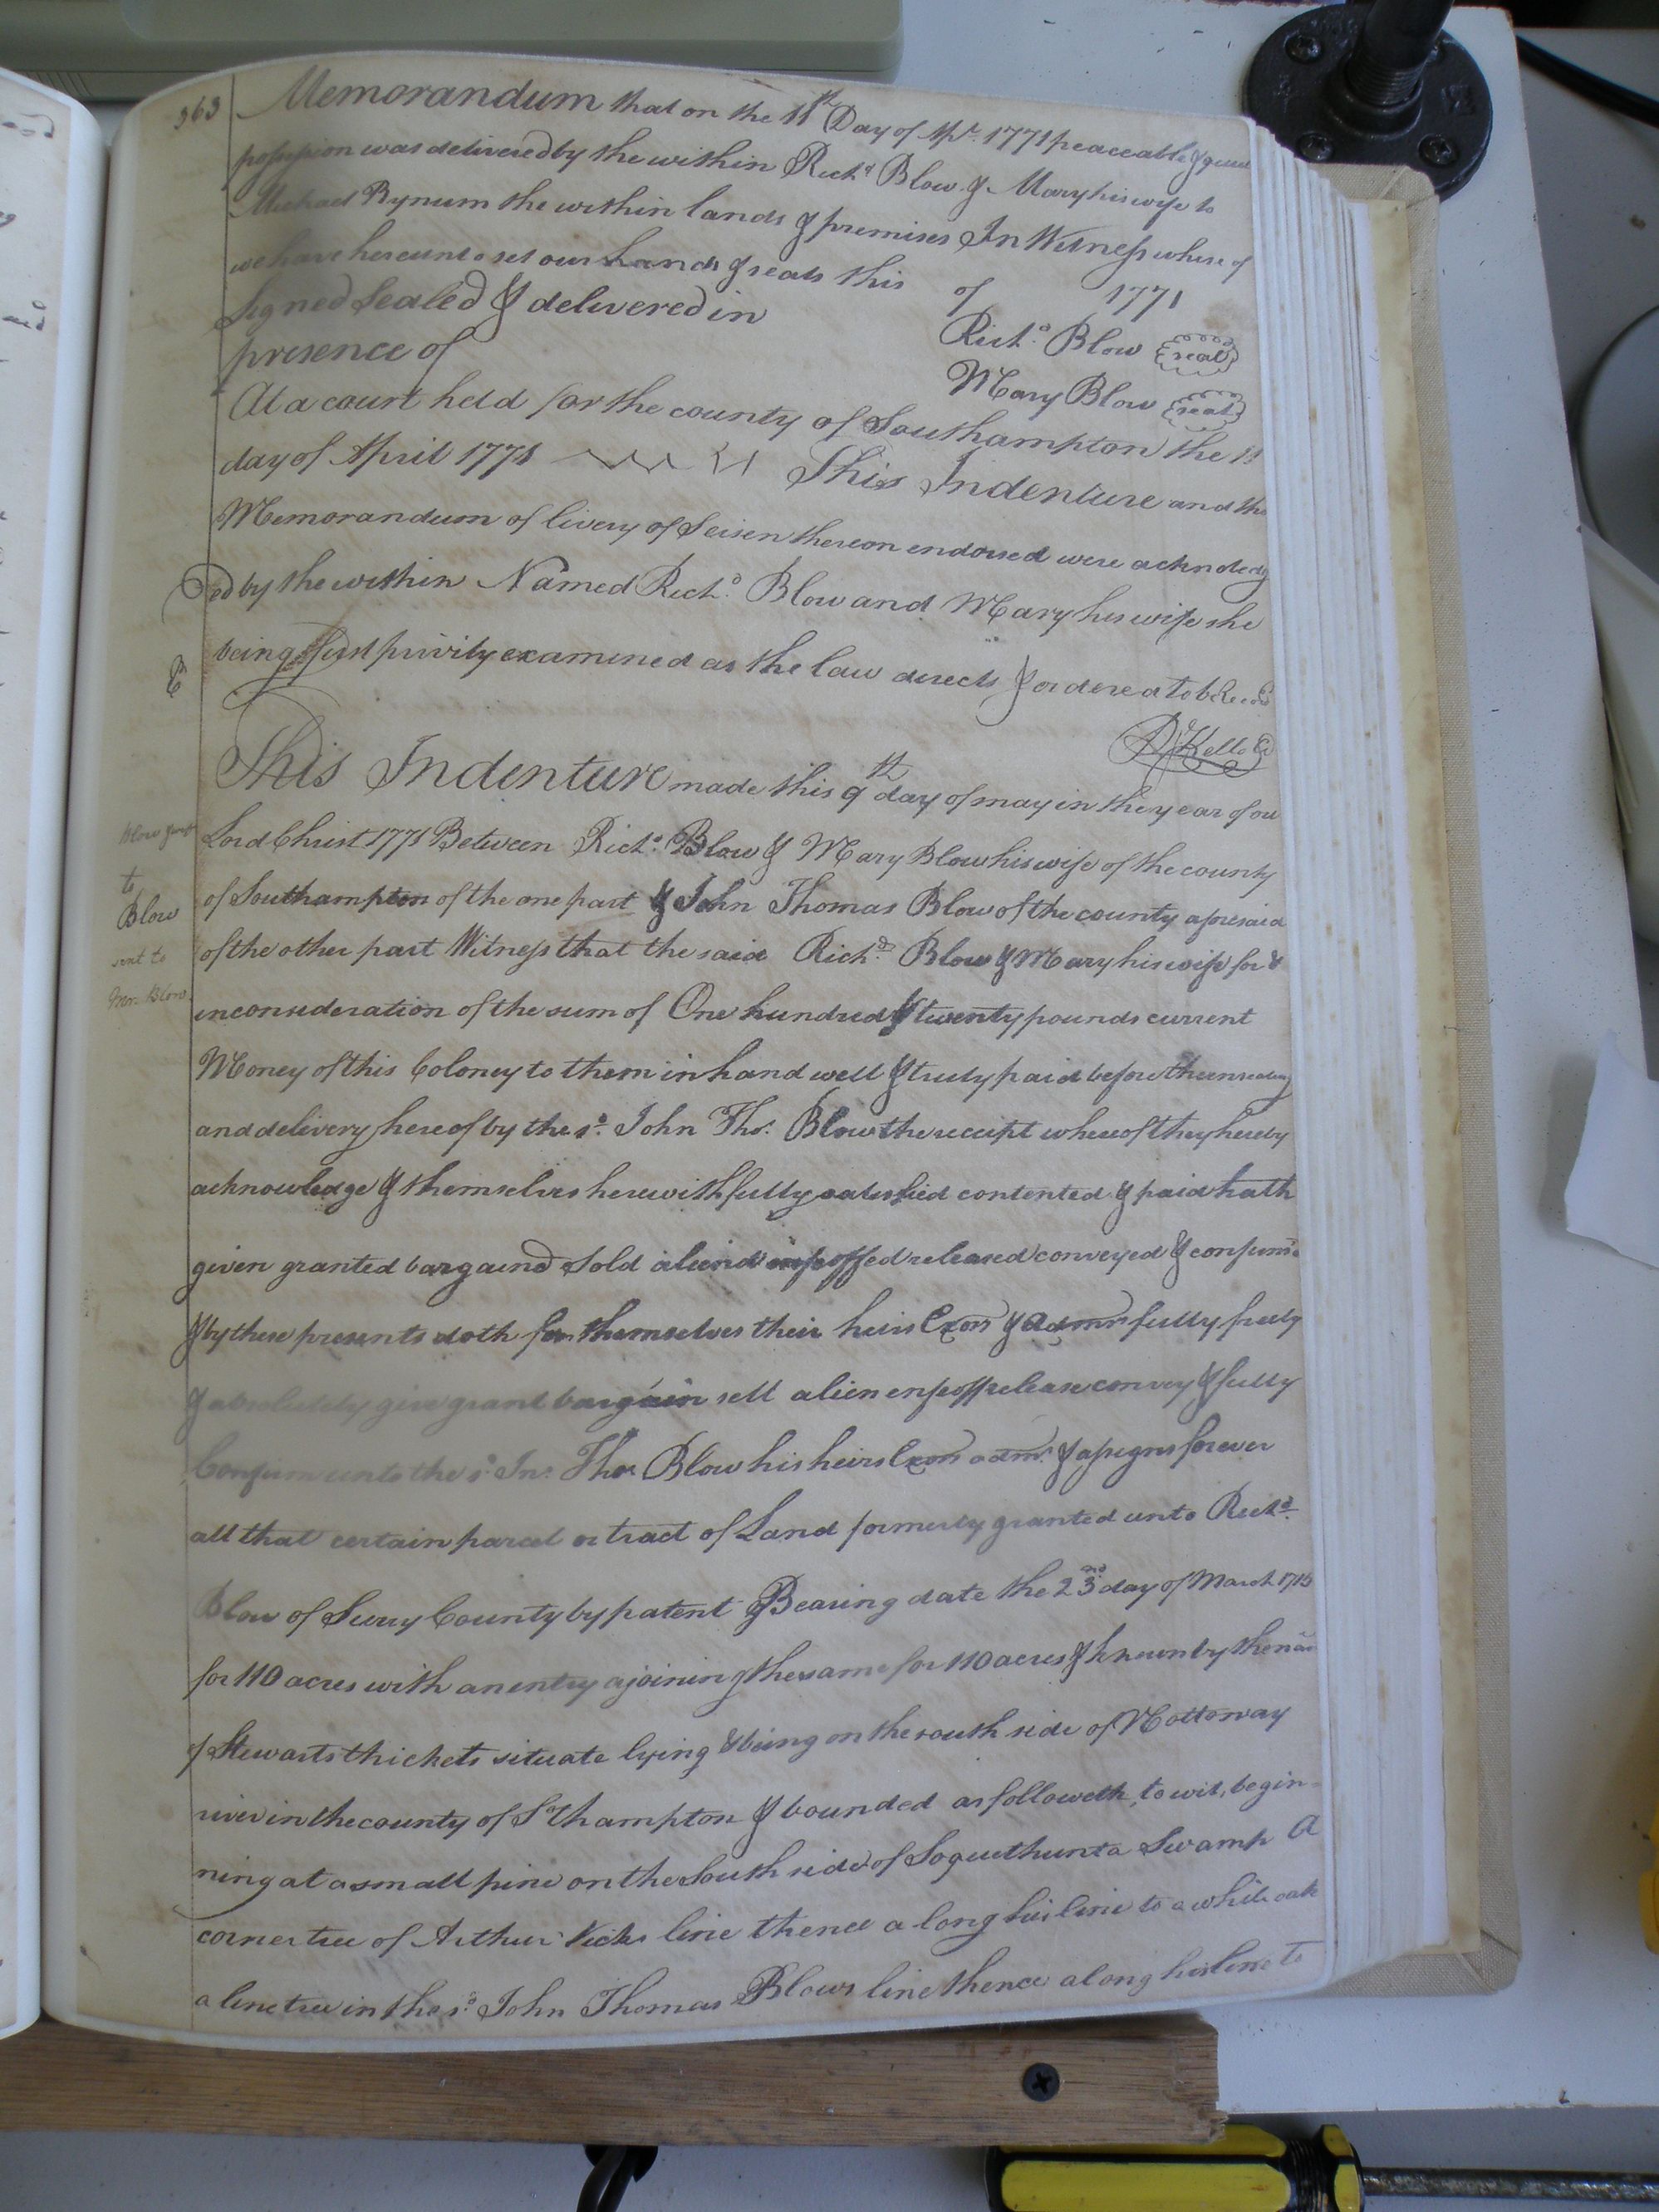 363 Memorandum that on the 11th Day of Apr. 1771 peaceable & quiet
possession was delivered by the within Richd. Blow & Mary his wife to
Michael Bynum the within lands & premises In Witness where of
we have hereunto set our hands & seals this of 1771
Signed Sealed & delivered in
presence of
Richd. Blow seal
Mary Blow seal
At a court held for the county of Southampton the 11
day of April 1771 This Indenture and the
Memorandum of livery of Seisen thereon endorsed were acknoledg
ed by the within Named Richd. Blow and Mary his wife she
being first privily examined as the law directs & ordered to be
Ex
This Indenture made this 9th day of may in the year of ou
Blow & wife
to
Blow
sent to
Lord Christ 1771 Between Richd. Blow & Mary Blow his wife of the county
of Southampton of the one part & John Thomas Blow of the county aforesaid
of the other part Witness that the said Richd. Blow & Mary his wife for &
inconsideration of the sum of One hundred & twenty pounds current
Money of this Coloney to them in hand well & truly paid before the
and delivery hereof by the sd. John Thos. Blow the receipt whereof they hereby
acknowledge & themselves herewith fully satisfied contented & paid hath
given granted bargaind Sold aliend enfeoffed released conveyed & confirmd
& by these presents doth for themselves their heirs Exors & Admrs fully freely
& absolutely give grant bargain sell alien enfeoff release convey & fully
Confirm unto the sd. Jno. Thos. Blow his heirs Exors admrs. & assigns forever
all that certain parcel or tract of Land formerly granted unto Richd.
Blow of Surry County by patent Bearing date the 23rd day of March 1715
for 110 acres with an entry ajoining the same for 110 acres & known by the
of Stewarts thickets situate lying & being on the south side of Nottoway
river in the county of S Thampton & bounded as followeth, to wit, begin-
ning at a small pine on the South side of Soquethunta Swamp A
corner tree of Arthur Vicks line thence a long his line to a white oak
a line tree in the sd. John Thomas Blows line thence along his line to